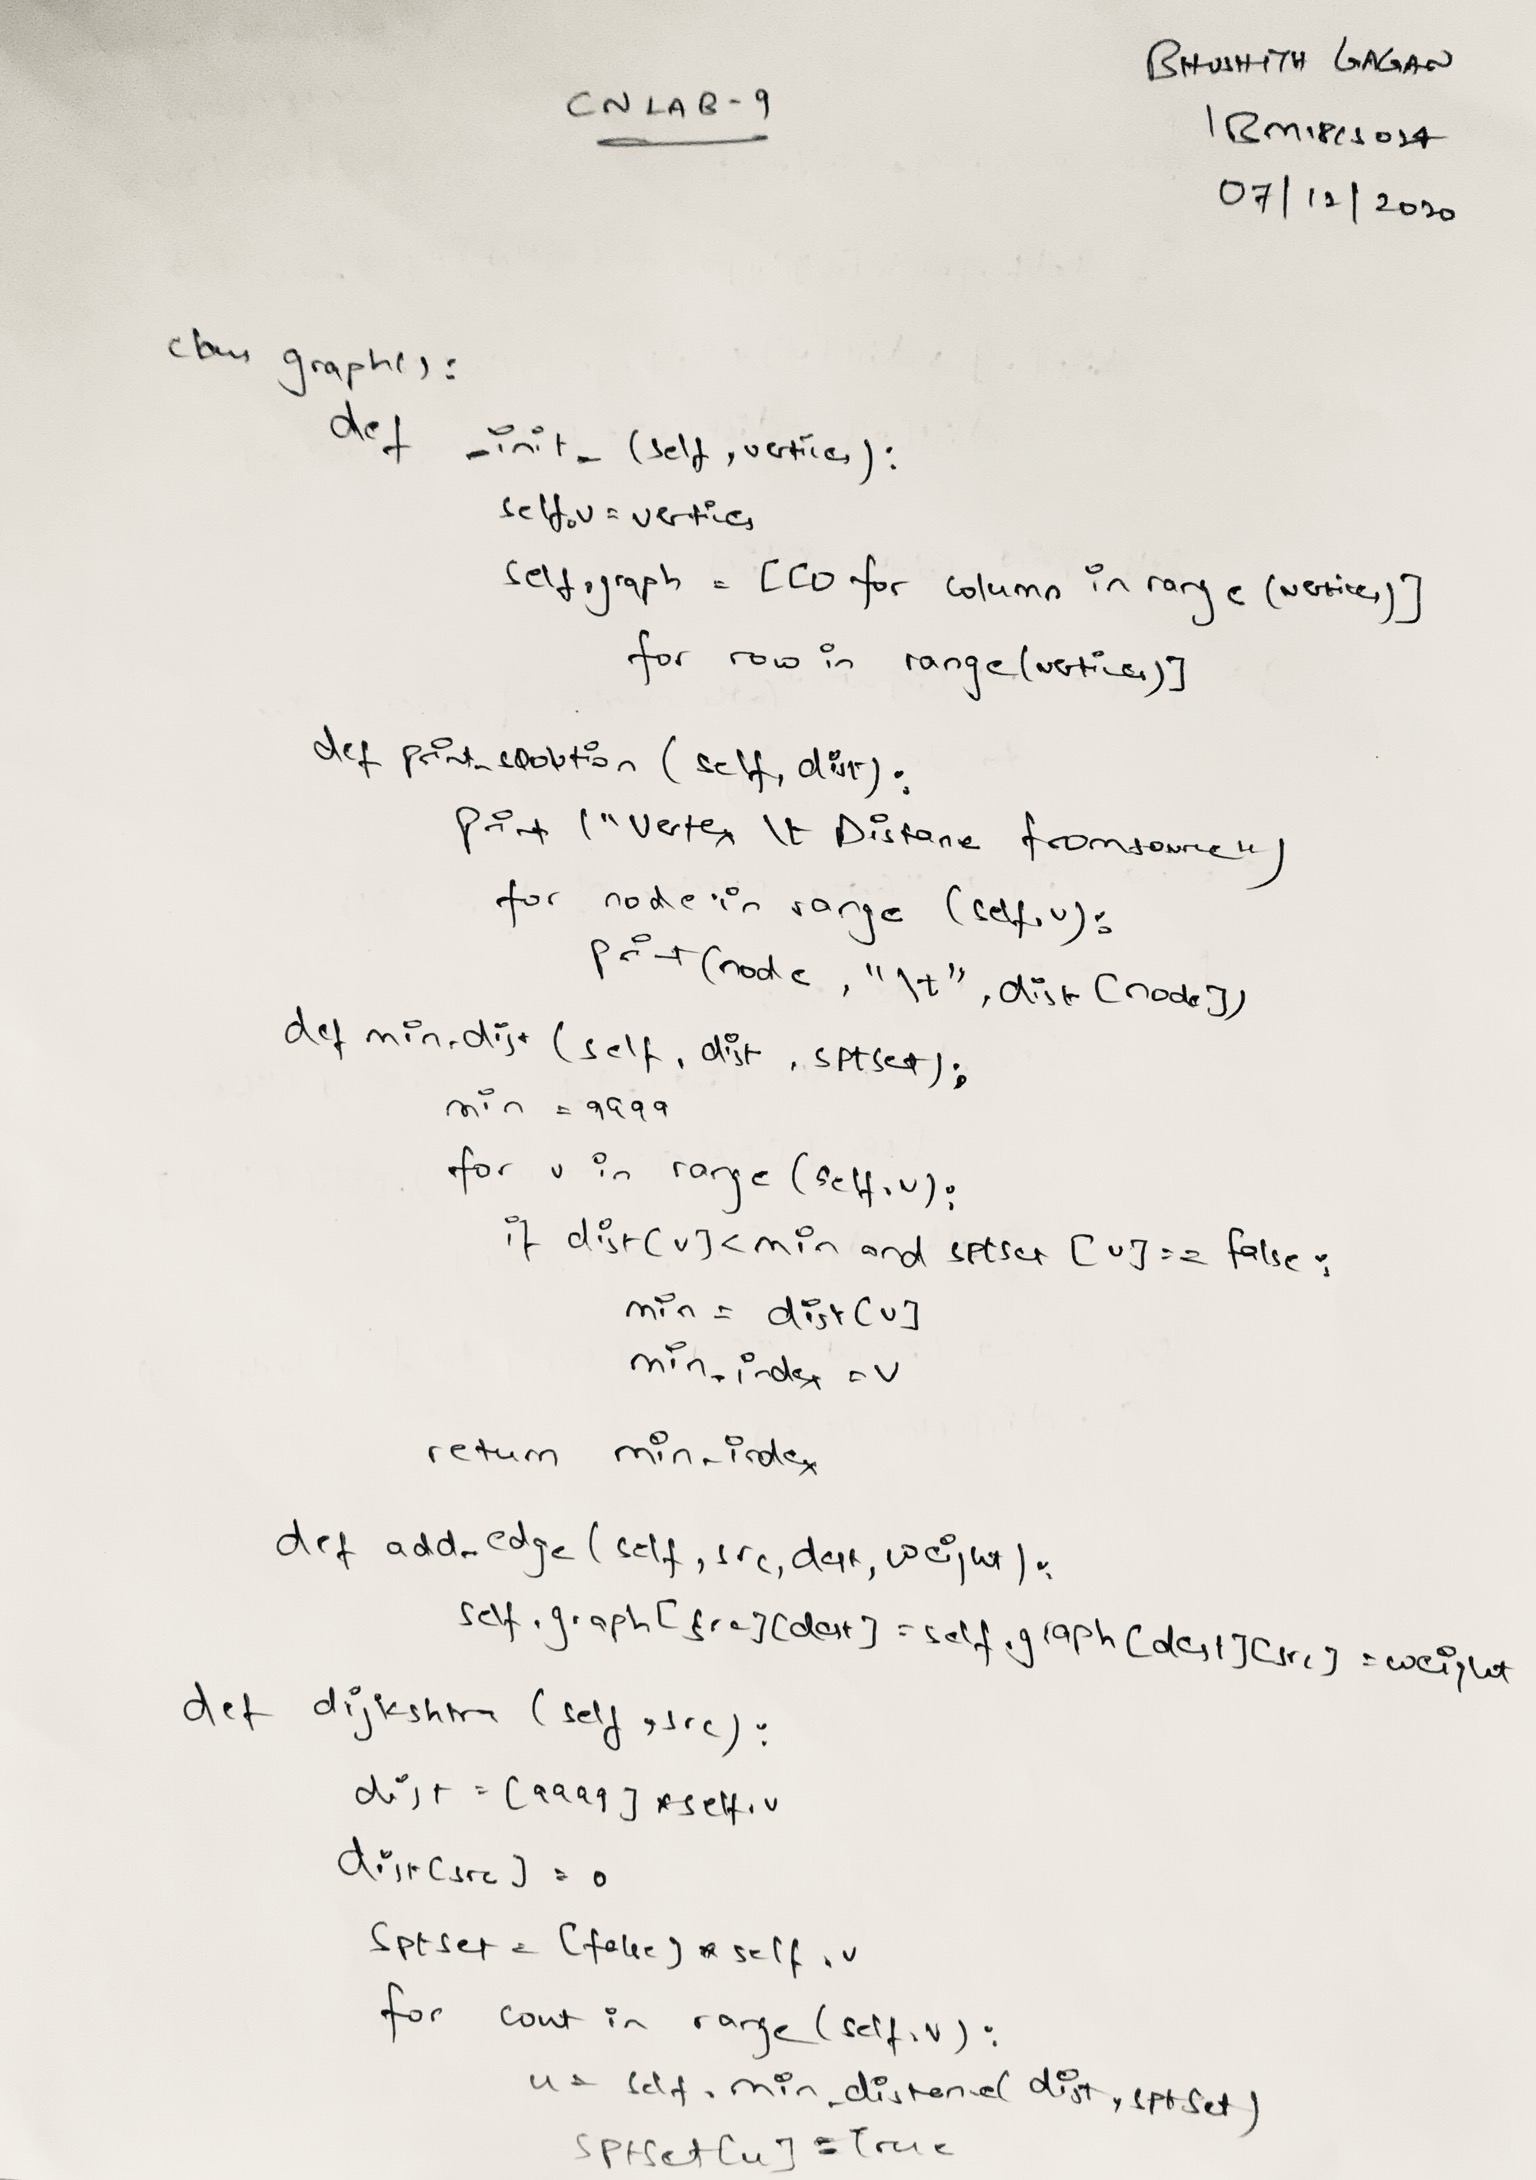 BHUSHITH GAGAN
CN LAB-9
1BM18CS024
07/12/2020
class graph():
def _init_ (self, vertices):
self.v = vertices
self.graph = [[0 for column in range (vertices)]
for row in range(vertices)]
def print_solution (self, dist):
print ("Vertex \t Distance from source")
for node in range (self.v):
print(node, "\t", dist[node])
def min_dist (self, dist, sptset):
min = 9999
for v in range (self.v):
if dist[v]<min and sptset [v]== false:
min = dist[v]
min_index = v
return min_index
def add_edge (self, src, dest, weight):
self.graph[src][dest] = self.graph[dest][src] = weight
def dijkshtra (self, src):
dist = [9999] *self.v
dist[src] = 0
Sptset = [false] * self.v
for cout in range (self.v):
u = self.min_distance( dist, sptSet)
SptSet[u] = True